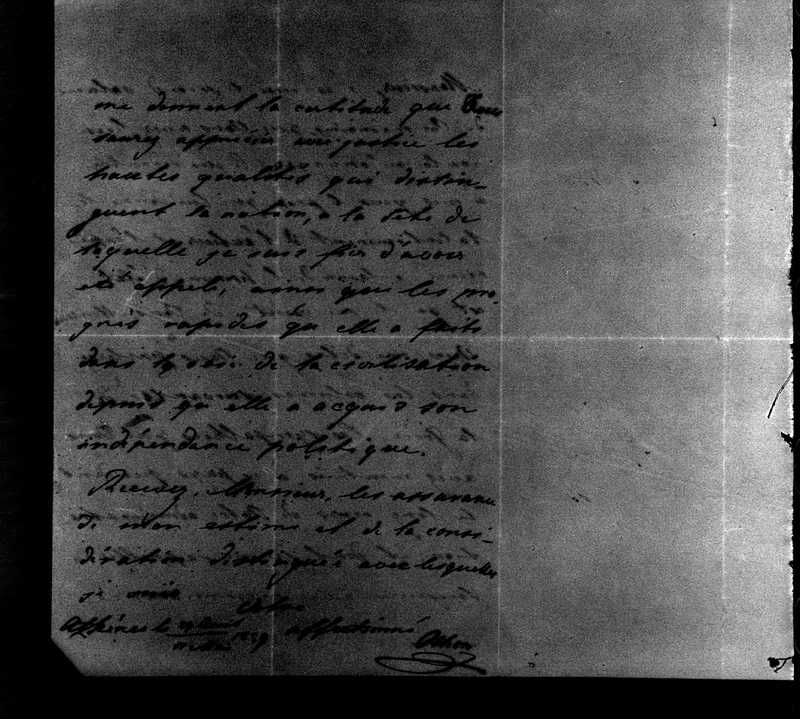 me donnent la certitude que Vous
saurez apprécier avec justice les
hautes qualités qui distin-
guent la nation, à la tête de
laquelle je suis fier d'avoir
été appelé, ainsi que les pro-
grès rapides qu'elle a faits
dans la voie de la civilisation
depuis qu'elle a acquis son
indépendance politique.
Recevez, Monsieur, les assurances
de mon estime et de la consi-
dération distinguée avec lesquelles
je suis
Votre
Athènes le 1859 affectionné
Othon